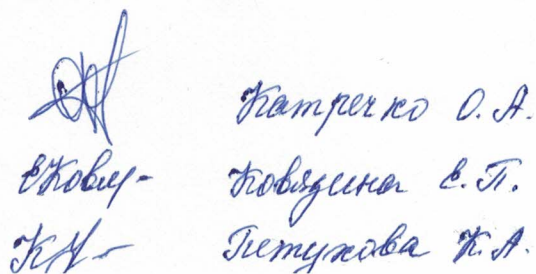 Катречко О. А.
ЕКовя- Ковязина Е. П.
Петухова К. А.